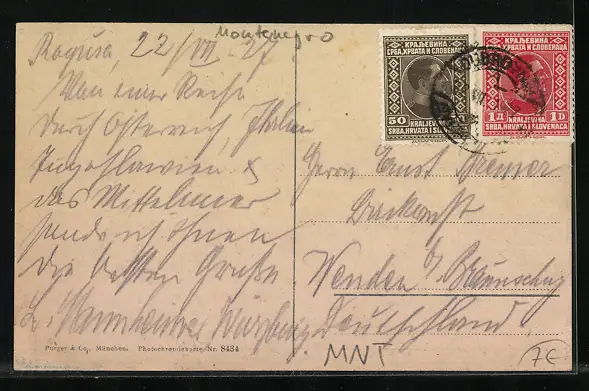 Montenegro
Ragusa, 22/VII 27
Von einer Reise
durch Österreich Italien
Jugoslawien &
das Mittelmeer
sende ich Ihnen
die besten Grüße
Mannheimer Würzburg
Herrn Ernst
Wenden i/ Braunschwg
Deutschland
Purger & Co., München. Photochromiekarte Nr. 8434
MNT
7€
КРАЉЕВИНА
СРБА, ХРВАТА И СЛОВЕНАЦА
50
KRALJEVINA
SRBA, HRVATA I SLOVENACA
КРАЉЕВИНА
СРБА, ХРВАТА И СЛОВЕНАЦА
1Д 1D
KRALJEVINA
SRBA, HRVATA I SLOVENACA